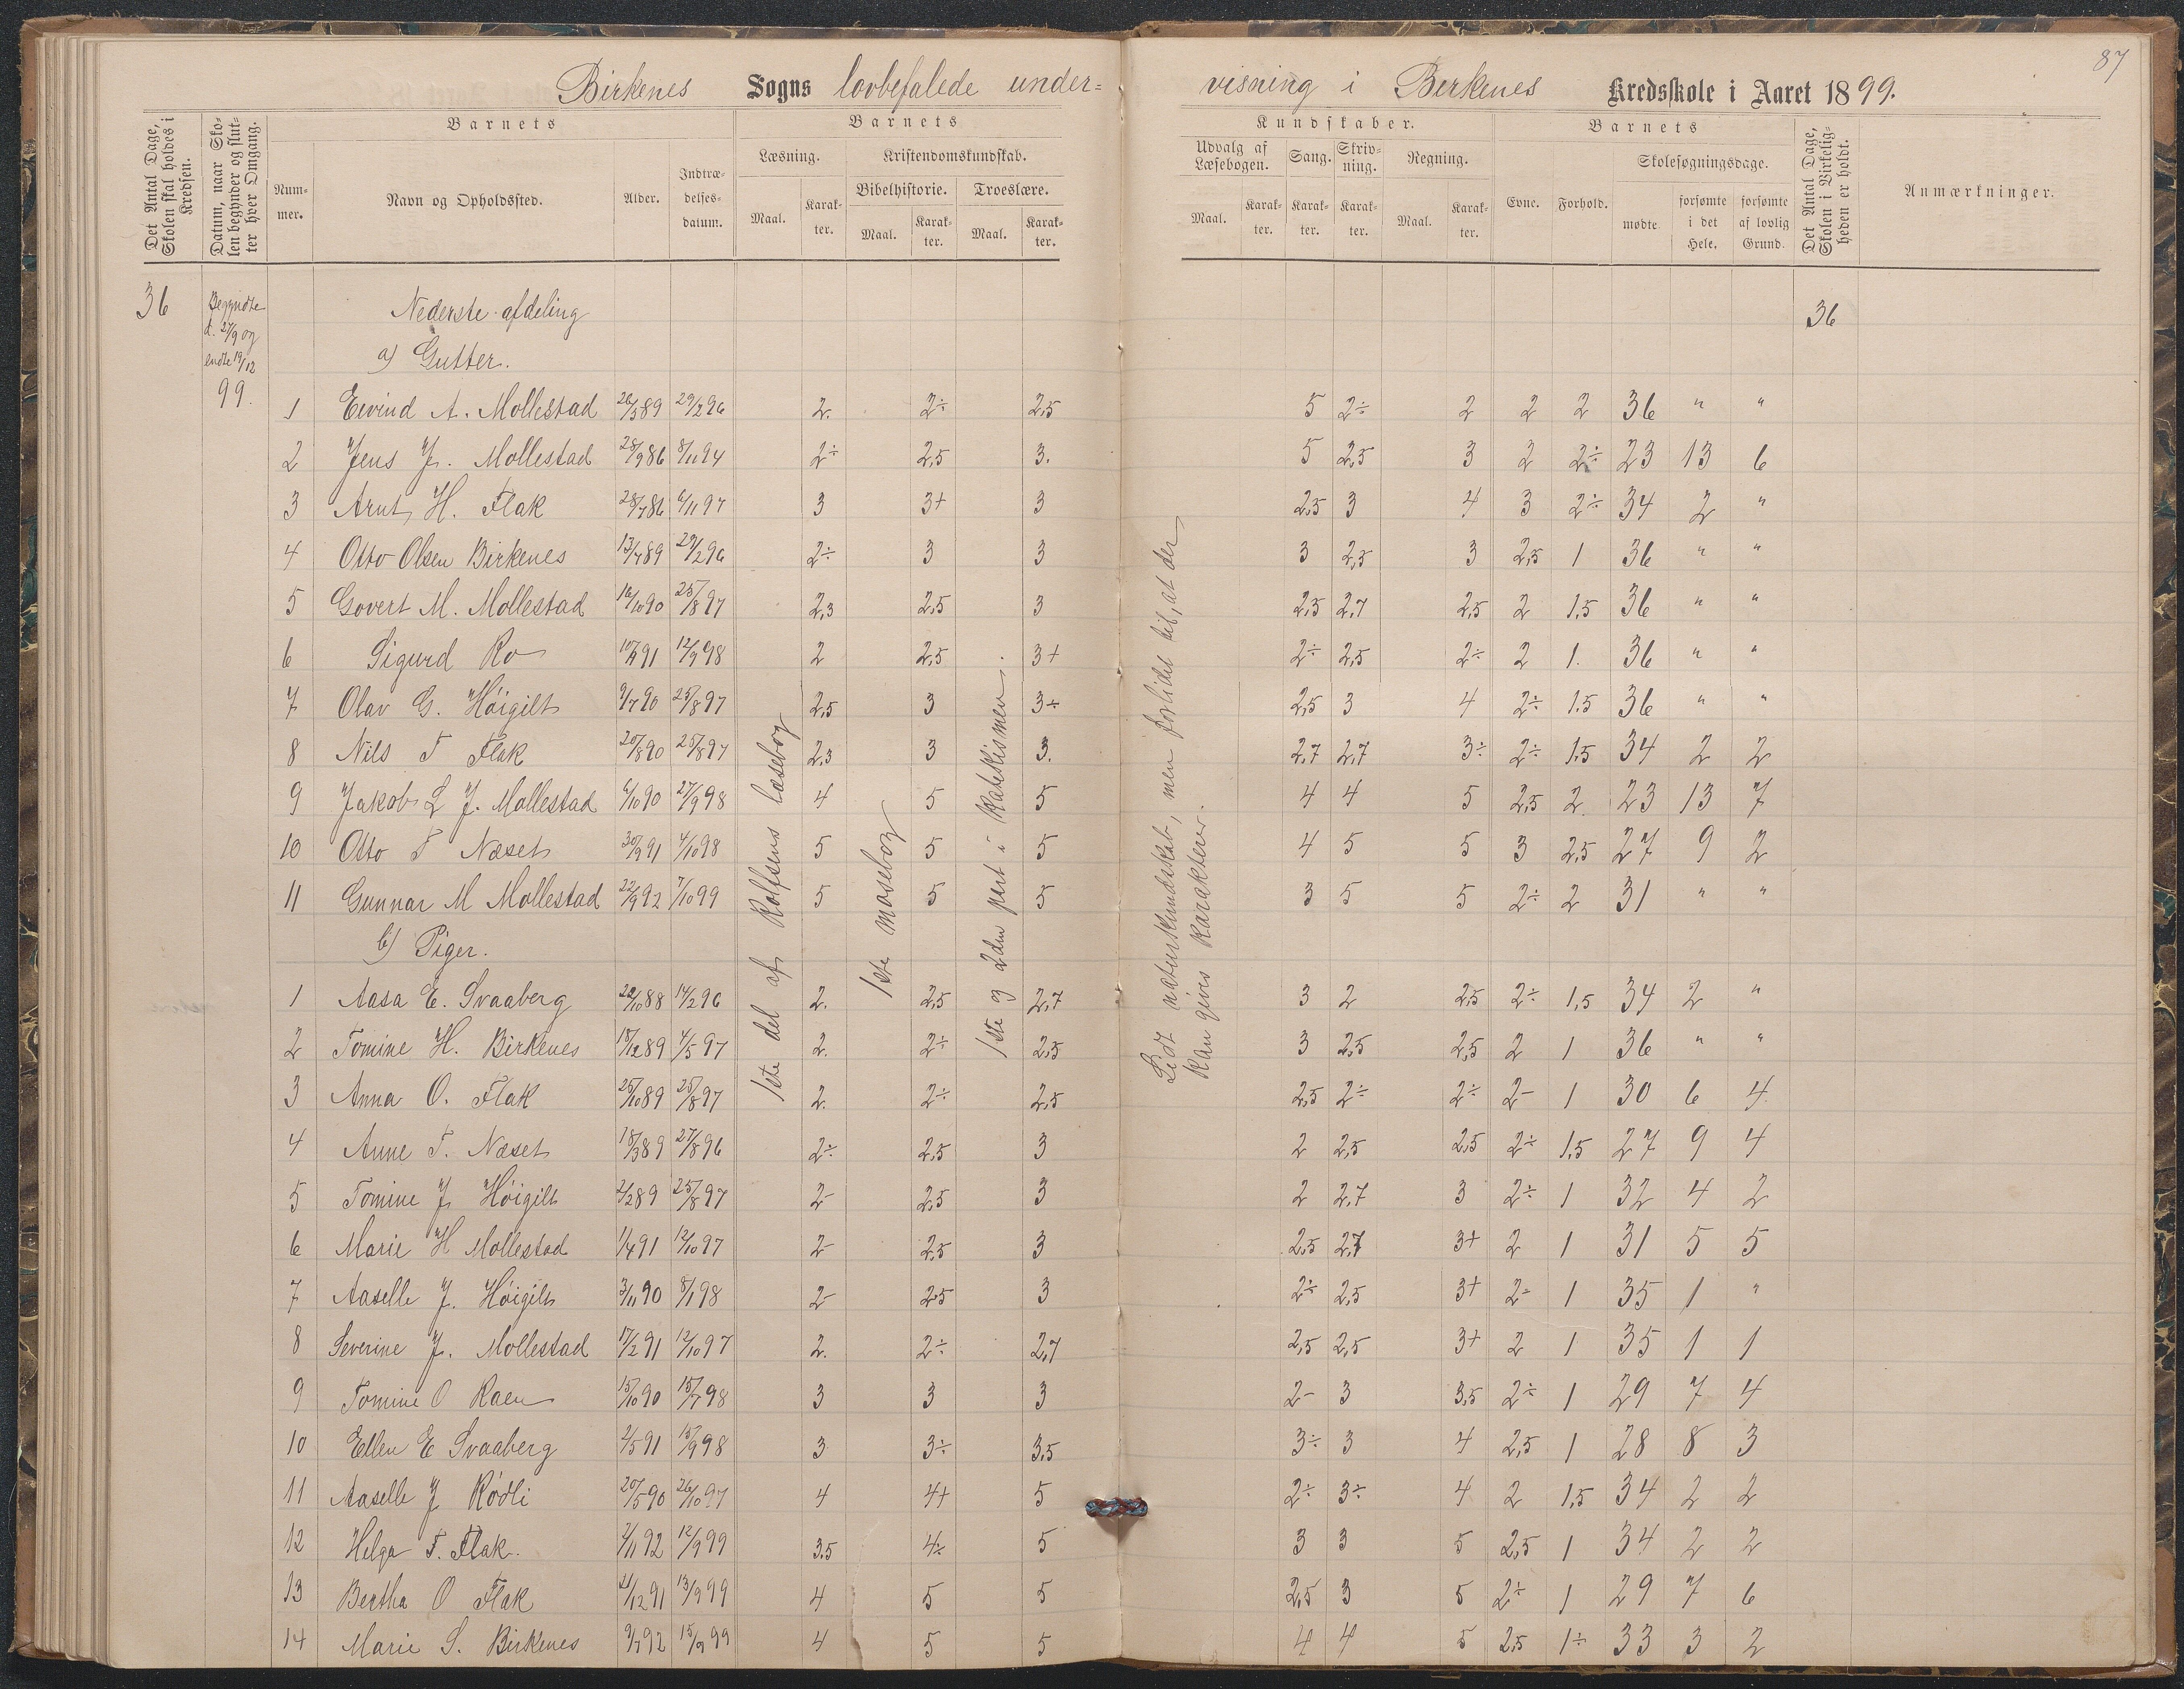 87
Birkenes Sogns lovbefalede under=
visning i Birkenes Kredsskole i Aaret 1899.
Det Antal Dage, Skolen skal holdes i Kredsen.
Datum, naar Skolen begynder og slutter hver Omgang.
Barnets
Num-mer.
Navn og Opholdssted.
Alder.
Indtræ-delses-datum.
Barnets
Læsning.
Maal.
Karak-ter.
Kristendomskundskab.
Bibelhistorie.
Maal.
Karak-ter.
Troeslære.
Maal.
Karak-ter.
Kundskaber.
Udvalg af Læsebogen.
Maal.
Karak-ter.
Sang.
Karak-ter.
Skriv-ning.
Karak-ter.
Regning.
Maal.
Karak-ter.
Barnets
Evne.
Forhold.
Skolesøgningsdage.
mødte
forsømte i det Hele.
forsømte af lovlig Grund.
Det Antal Dage, Skolen i Virkelig-heden er holdt.
Anmærkninger.
36
Begyndte
d. 27/9 og
endte 19/12
99.
Nederste afdeling
36
a) Gutter.
1 Eivind A. Mollestad 26/3 89 29/2 96 2. 2÷ 2,5 5 2÷ 2 2 2 36 " "
2 Jens J. Mollestad 28/9 86 8/11 94 2÷ 2,5 3. 5 2,5 3 2 2÷ 23 13 6
3 Arnt H. Flak 28/7 86 6/11 97 3 3+ 3 2,5 3 4 3 2÷ 34 2 "
4 Otto Olsen Birkenes 13/7 89 29/2 96 2÷ 3 3 3 2,5 3 2,5 1 36 " "
5 Govert M. Mollestad 16/10 90 25/8 97 2,3 2,5 3 2,5 2,7 2,5 2 1,5 36 " "
6 Sigurd Ro 12/9 98 2 2,5 3+ 2÷ 2,5 2÷ 2 1. 36 " "
7 Olav G. Høigilt 9/7 90 25/8 97 2,5 3 3÷ 2,5 3 4 2÷ 1.5 36 " "
8 Nils T Flak 20/8 90 25/8 97 2,3 3 3. 2,7 2,7 3÷ 2÷ 1,5 34 2 2
9 Jakob L J. Mollestad 6/10 90 27/9 98 4 5 5 4 4 5 2,5 2 23 13 7
10 Otto T Næset 30/9 91 4/10 98 5 5 5 4 5 5 3 2,5 27 9 2
11 Gunnar M Mollestad 22/9 92 7/10 99 5 5 5 3 5 5 2÷ 2 31 " "
b) Piger.
1 Aasa E. Svaaberg 22/10 88 14/2 96 2. 2,5 2,7 3 2 2,5 2÷ 1,5 34 2 "
2 Tomine H. Birkenes 18/12 89 4/5 97 2. 2÷ 2,5 3 2,5 2,5 2 1 36 " "
3 Anna O. Flak 25/10 89 25/8 97 2. 2÷ 2,5 2,5 2÷ 2÷ 2- 1 30 6 4
4 Anne T. Næset 18/3 89 27/8 96 2÷ 2,5 3 2 2,5 2,5 2÷ 1,5 27 9 4
5 Tomine J. Høigilt 2/2 89 25/8 97 2- 2,5 3 2 2,7 3 2÷ 1 32 4 2
6 Marie H Mollestad 1/4 91 12/10 97 2- 2,5 3 2,5 2,7 3+ 2 1 31 5 5
7 Aaselle J. Høigilt 3/11 90 8/1 98 2- 2,5 3 2÷ 2,5 3+ 2- 1 35 1 "
8 Severine J. Mollestad 17/2 91 12/10 97 2. 2÷ 2,7 2,5 2,5 3+ 2 1 35 1 1
9 Tomine O Raen 15/10 90 15/7 98 3 3 3 2- 3 3,5 2÷ 1 29 7 4
10 Ellen E Svaaberg 2/5 91 15/9 98 3 3÷ 3,5 3÷ 3 4 2,5 1 28 8 3
11 Aaselle J Rødli 20/5 90 26/10 97 4 4+ 5 2÷ 3÷ 4 2 1,5 34 2 2
12 Helga T. Flak. 2/11 92 12/9 99 3,5 4÷ 5 3 3 5 2,5 1 34 2 2
13 Bertha O Flak 21/12 91 13/9 99 4 5 5 2,5 3 5 2÷ 1 29 7 6
14 Marie S. Birkenes 9/7 92 15/9 99 4 5 5 4 4 5 2,5 1÷ 33 3 2
1ste del af Rolfsens læsebog
1ste mosebog
1ste og 2den part i Katekismen.
Lidt naturkundskab, men forlidet til, at der
kan gives karakter.